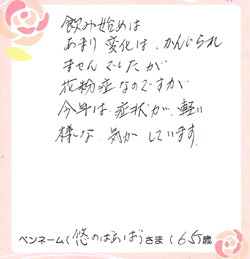 飲み始めは
あまり変化は、かんじられ
ませんでしたが
花粉症なのですが
今年は、症状が、軽い
様な、気がしています。
ペンネーム(悠のばあば)さま(65)歳